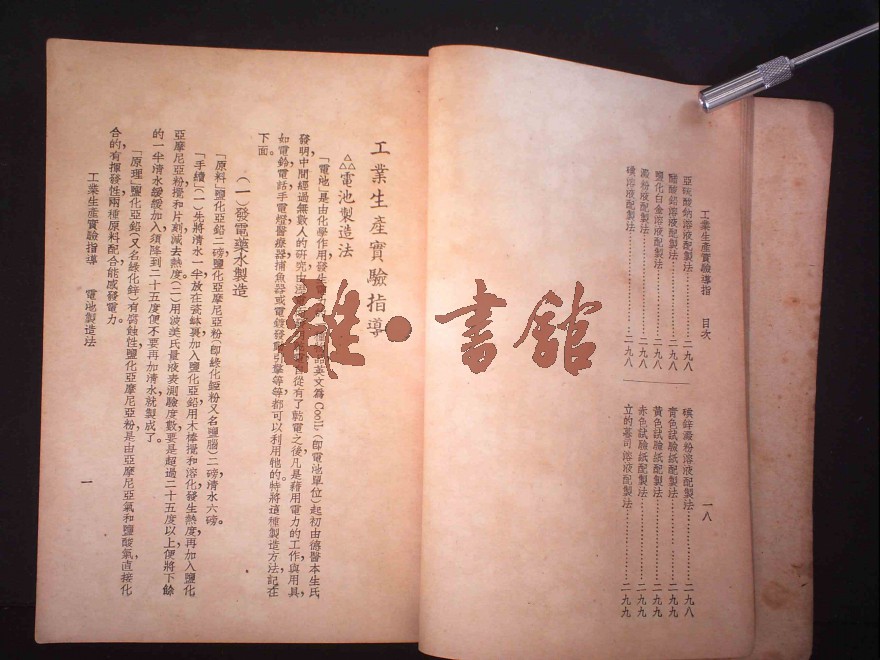 工業生產實驗指導　目次
亞硫酸鈉溶液配製法……二九八
醋酸鉛溶液配製法……二九八
鹽化白金溶液配製法……二九八
澱粉液配製法……二九八
碘溶液配製法……二九八
碘鋅澱粉溶液配製法……二九八
青色試驗紙配製法……二九九
黃色試驗紙配製法……二九九
赤色試驗紙配製法……二九九
立的慕司溶液配製法……二九九
一八
工業生產實驗指導
△△電池製造法
「電池」是由化學作用發生 英文寫 Coolr.（即電池單位）起初由德醫本生氏
發明，中間經過無數人的研究，由 從有了乾電之後，凡是藉用電力的工作與用具，
如電鈴電話，手電燈醫療器捕魚器或電鍍發 引擎等等，都可以利用牠的。特將這種製造方法，記在
下面。
（一）發電藥水製造
「原料」鹽化亞鉛二磅鹽化亞摩尼亞粉（即綠化錏粉又名鹽腦）二磅清水六磅。
「手續」（一）先將清水一半放在瓷缽裏，加入鹽化亞鉛，用木棒攪和溶化，發生熱度，再加入鹽化
亞摩尼亞粉攪和片刻，減去熱度。（二）用波美氏量液表測驗度數，要是超過二十五度以上，便將下餘
的一半清水緩緩加入，須降到二十五度，便不要再加清水，就製成了。
「原理」鹽化亞鉛（又名綠化鋅）有腐蝕性，鹽化亞摩尼亞粉，是由亞摩尼亞氣和鹽酸氣直接化
合的，有揮發性，兩種原料配合，能感發電力。
工業生產實驗指導　電池製造法
一
雒·書館